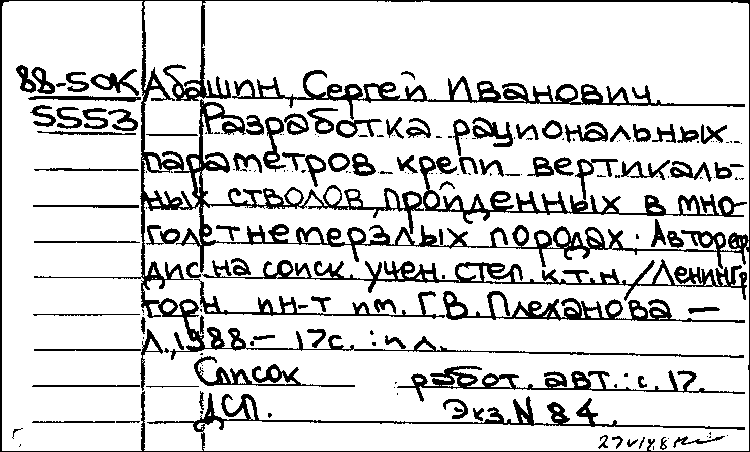 88-50К Абашин, Сергей Иванович.
5553 Разработка рациональных
параметров крепи вертикаль-
ных стволов, пройденных в мно-
голетнемерзлых породах: Автореф.
дис. на соиск. учен. степ. к.т.н. / Ленингр.
горн. ин-т им. Г.В. Плеханова. —
Л., 1988. — 17с. : ил.
Список работ. авт.: с. 17.
ДСП. Экз. N 84.